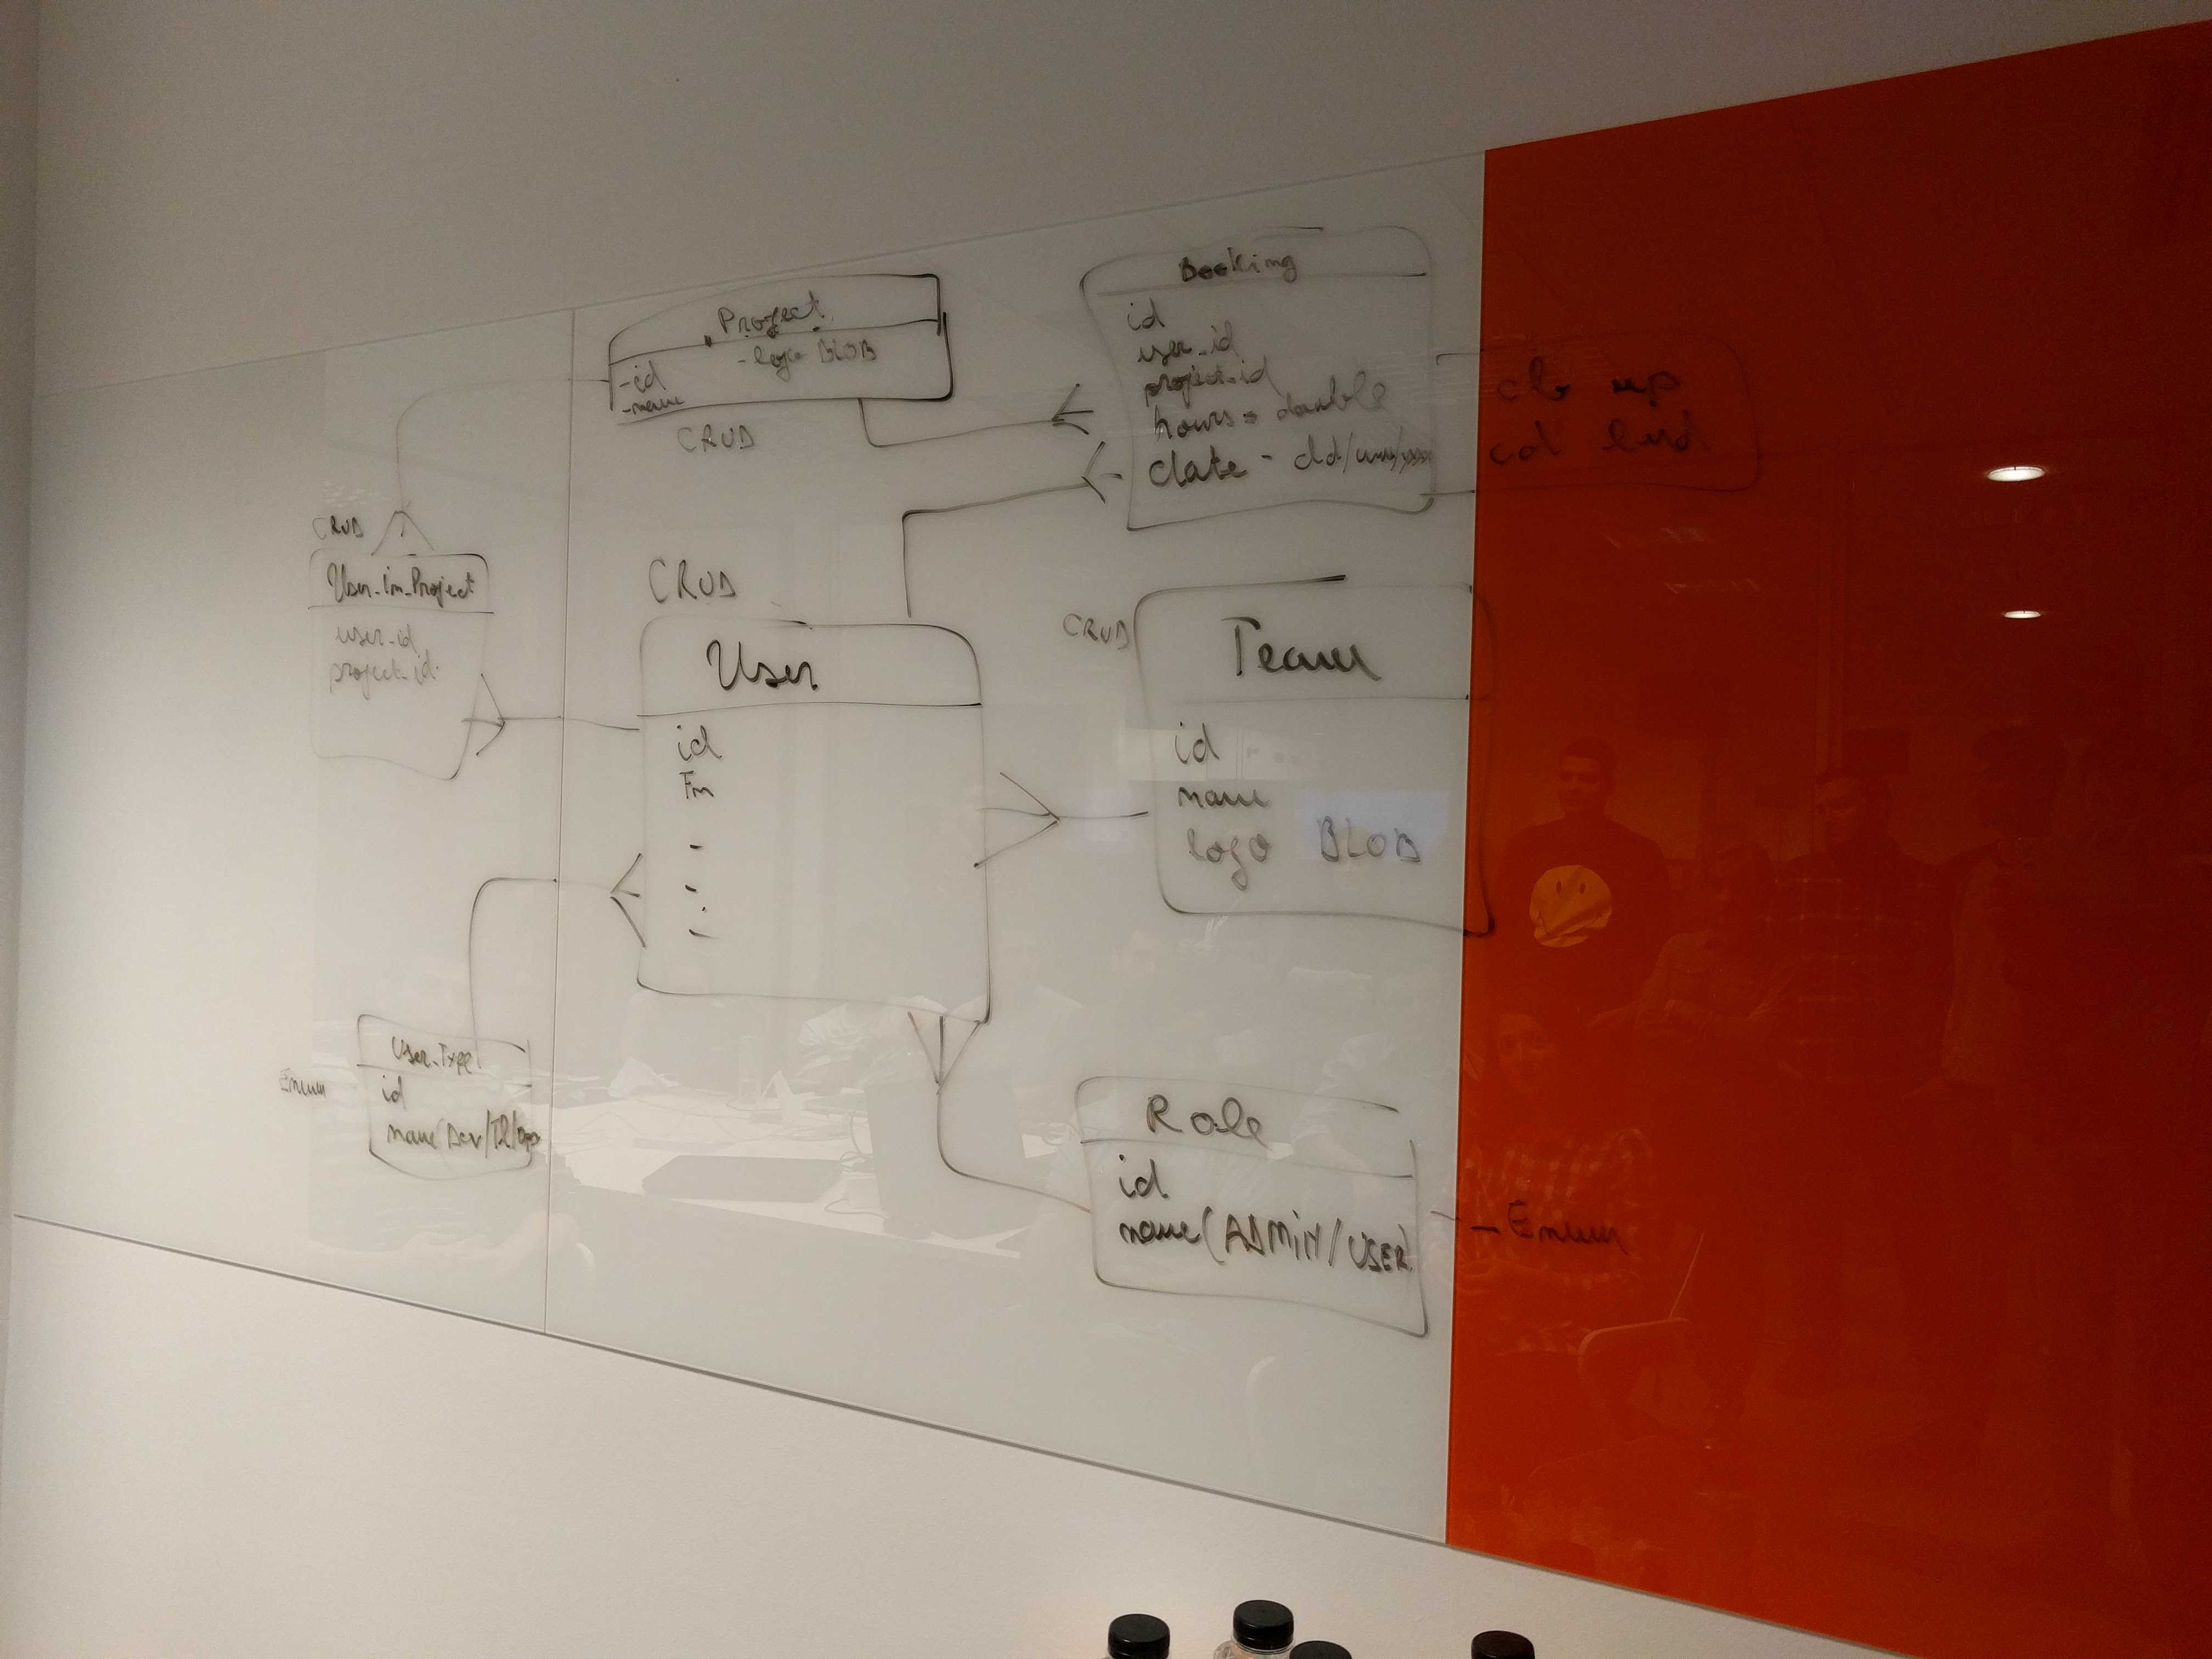 Project
- logo BLOB
- id
- name
CRUD
Booking
id
user_id
project_id
hours = double
date - dd/mm/yyyy
CRUD
User_in_Project
user_id
project_id
CRUD
User
id
Fn
-
-
-
CRUD
Team
id
name
logo BLOB
User_Type
id
name(Dev/TL/Ops
Enum
Role
id
name (ADMIN/USER)
- Enum